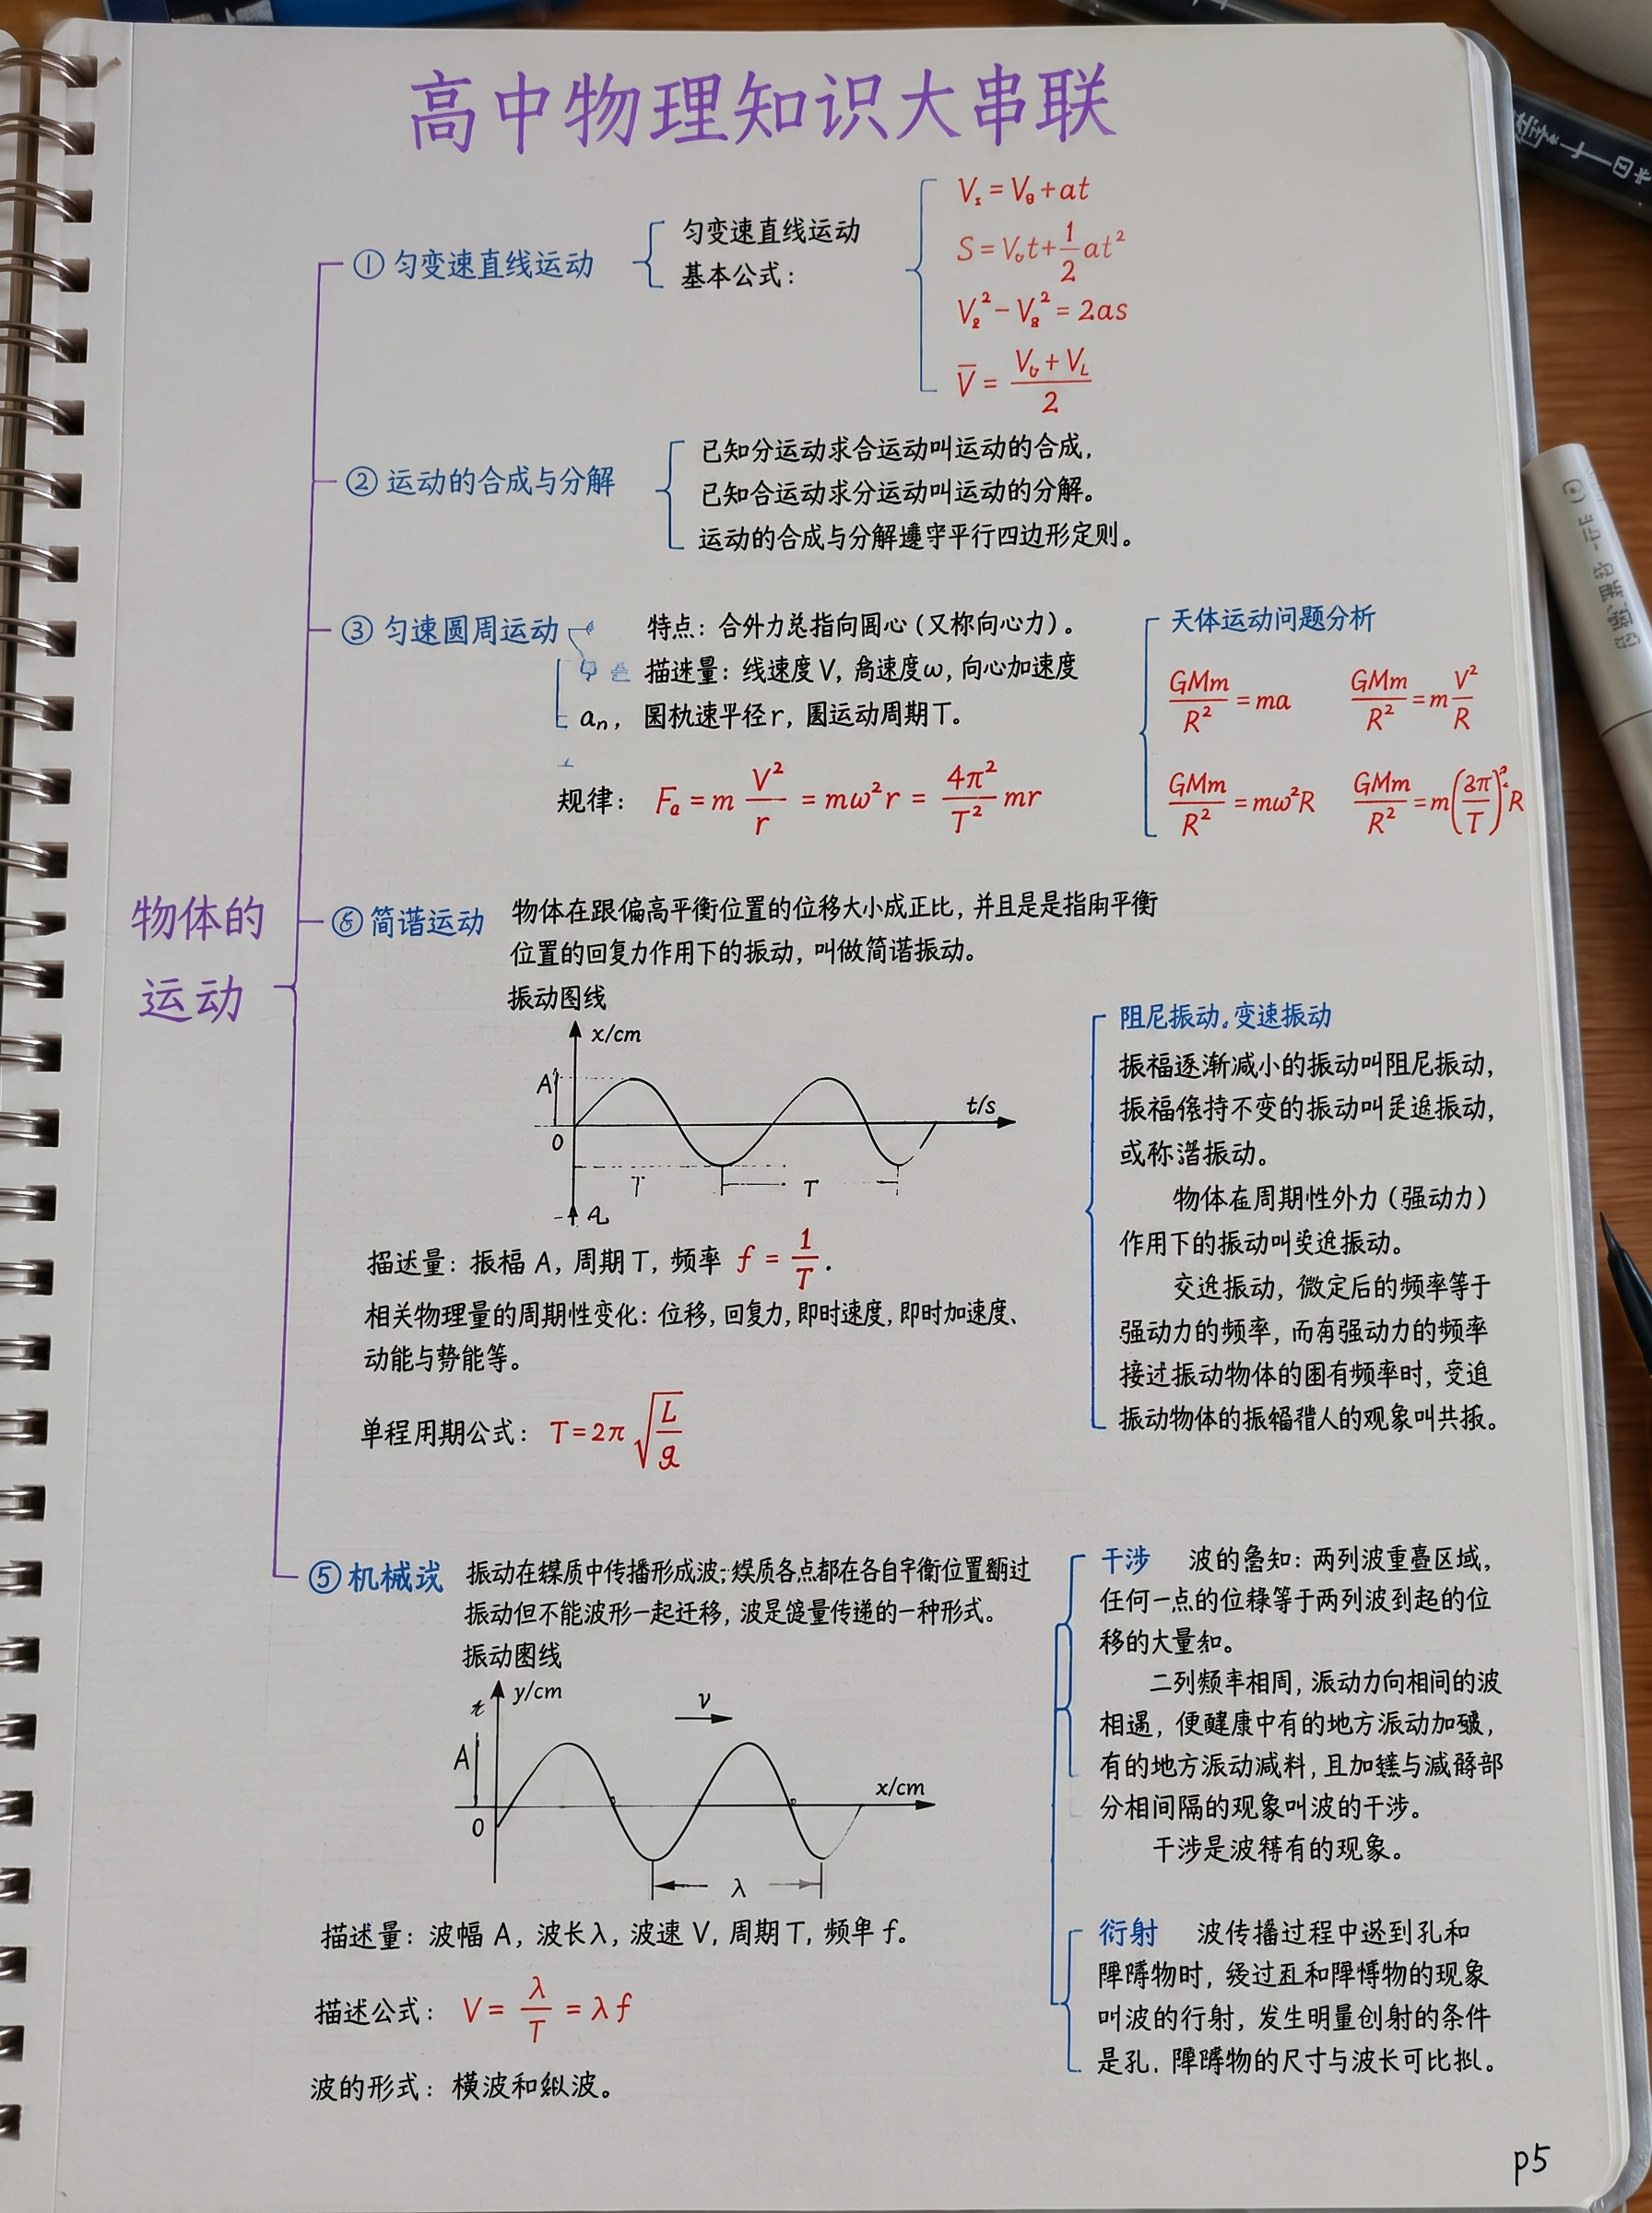 高中物理知识大串联
物体的
运动
① 匀变速直线运动
匀变速直线运动
基本公式:
V = V₀ + at
S = V₀t + 1/2 at²
V² - V² = 2as
V̄ = (V + V)/2
② 运动的合成与分解
已知分运动求合运动叫运动的合成,
已知合运动求分运动叫运动的分解。
运动的合成与分解遵守平行四边形定则。
③ 匀速圆周运动
特点: 合外力总指向圆心 (又称向心力)。
描述量: 线速度 V, 速度ω, 向心加速度
aₙ, 径 r, 运动周期 T。
规律: Fₐ = m V²/r = mω²r = 4π²/T² mr
天体运动问题分析
GMm/R² = ma GMm/R² = m V²/R
GMm/R² = mω²R GMm/R² = m(2π/T)²R
简谐运动
物体在跟偏高平衡位置的位移大小成正比, 并且是是指平衡
位置的回复力作用下的振动, 叫做简谐振动。
振动图线
x/cm
A
t/s
0
T T
A
描述量: 振幅 A, 周期 T, 频率 f = 1/T.
相关物理量的周期性变化: 位移, 回复力, 即时速度, 即时加速度、
动能与势能等。
单程用期公式: T = 2π √(L/g)
阻尼振动。变速振动
振福逐渐减小的振动叫阻尼振动,
振福持不变的振动叫振动,
或称振动。
物体在周期性外力 (强动力)
作用下的振动叫振动。
交振动, 微定后的频率等于
强动力的频率, 而有强动力的频率
接过振动物体的有频率时, 受迫
振动物体的振人的观象叫共振。
⑤ 机械
振动在媒质中传播形成波; 媒质各点都在各自衡位置过
振动但不能波形一起迁移, 波是量传递的一种形式。
振动图线
y/cm
v
A
x/cm
0
λ
描述量: 波幅 A, 波长λ, 波速 V, 周期 T, 频率 f。
描述公式: V = λ/T = λf
波的形式: 横波和纵波。
干涉 波的知: 两列波重叠区域,
任何一点的位等于两列波到起的位
移的大量和。
二列频率相周, 派动力向相间的波
相遇, 便健康中有的地方派动加,
有的地方派动减料, 且加与减部
分相间隔的观象叫波的干涉。
干涉是波有的现象。
衍射 波传播过程中遂到孔和
障物时, 过和障物的现象
叫波的行射, 发生明量创射的条件
是孔. 障物的尺寸与波长可比拟。
p5